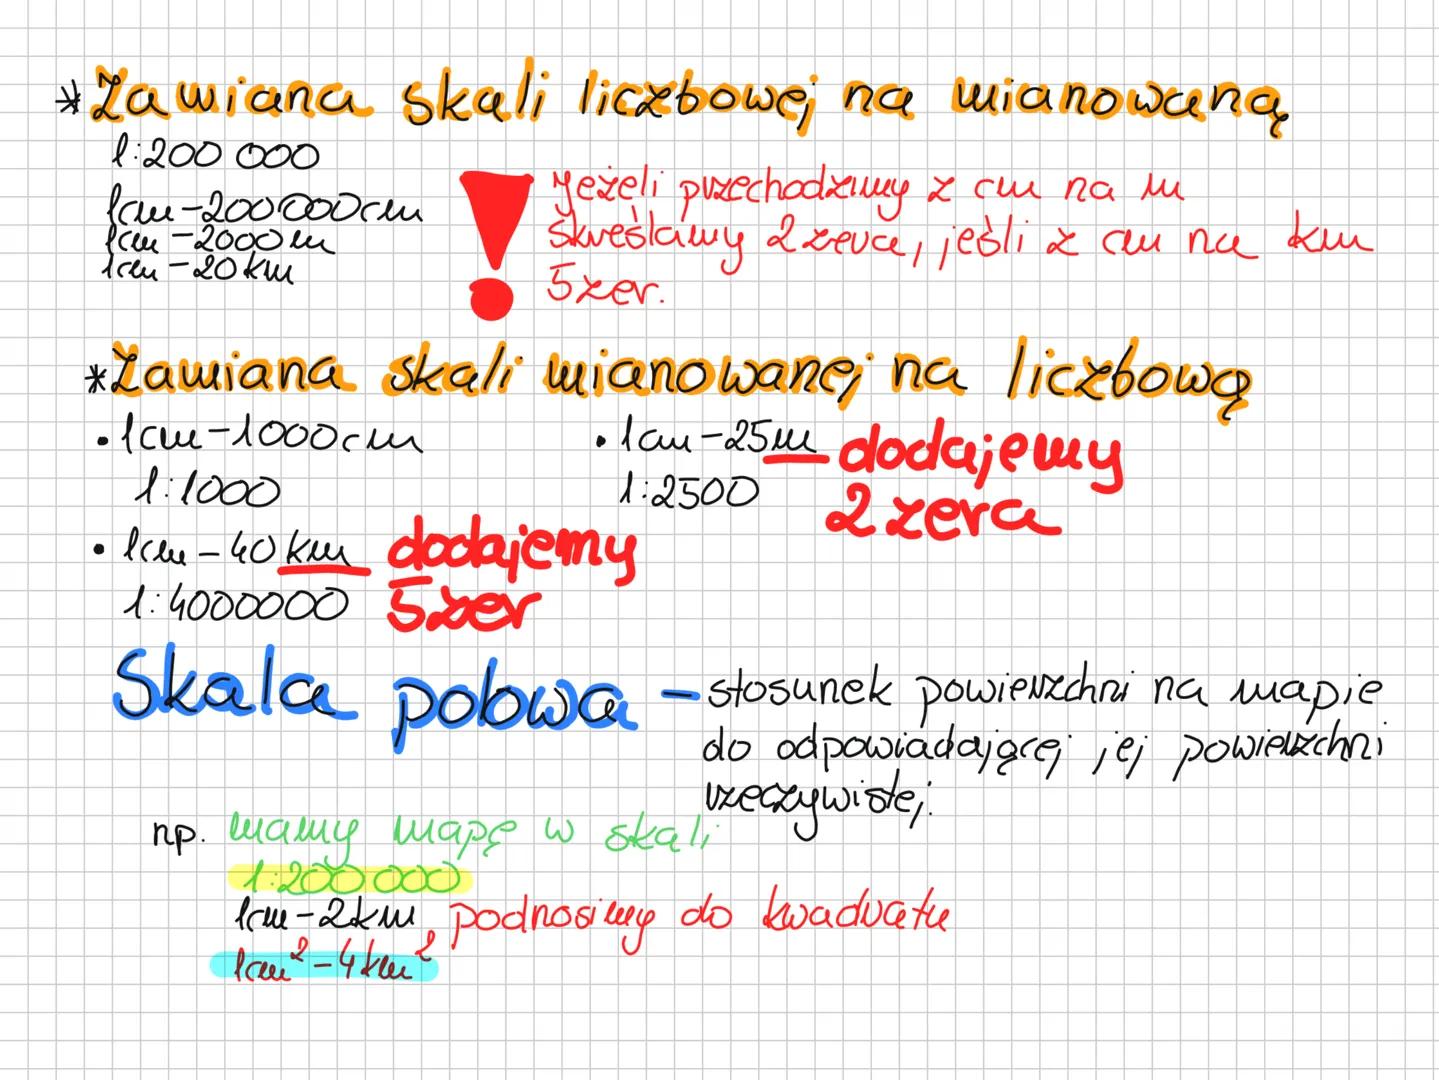 * Zamiana skali liczbowej na mianowaną
1:200 000
1cm-200 000cm
1cm-2000m
1cm-20km
! Jeżeli przechodzimy z cm na m
skreślamy 2 zera, jeśli z cm na km
5 zer.
* Zamiana skali mianowanej na liczbową
• 1cm-1000cm
1:1000
• 1cm-25m dodajemy
1:2500 2 zera
• 1cm-40km dodajemy
1:4000000 5 zer
Skala polowa - stosunek powierzchni na mapie
do odpowiadającej jej powierzchni
rzeczywistej.
np. mamy mapę w skali
1:200 000
1cm-2km, podnosimy do kwadratu
1cm²-4km²